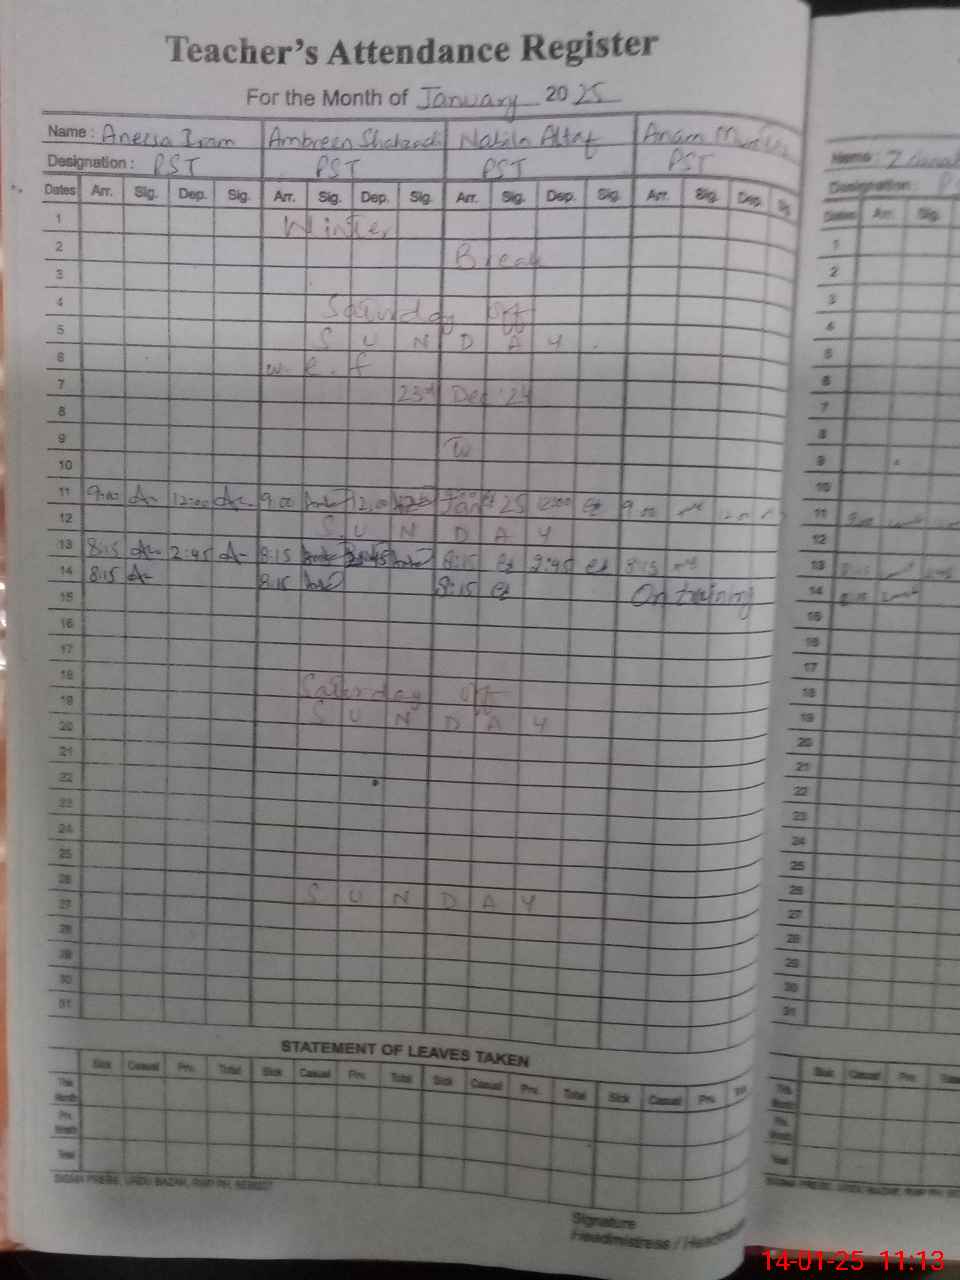 Teacher's Attendance Register
For the Month of January 2025
Name : Aneesa Iram Ambreen Shahzadi Nabila Altaf Anam
Designation : PST PST PST PST
Dates Arr. Sig. Dep. Sig. Arr. Sig. Dep. Sig. Arr. Sig. Dep. Sig. Arr. Sig. Dep. Sig.
1 Winter
2 Break
3
4 Saturday off
5 S U N D A Y
6 w. e. f
7 23rd Dec '24
8
9 To
10
11 9:00 12:00 9:00 12:00 Jan 25 12:00 9:00
12 S U N D A Y
13 8:15 2:45 8:15 2:45 8:15 2:45 8:15
14 8:15 8:15 8:15 On training
15
16
17
18 Saturday off
19 S U N D A Y
20
21
22
23
24
25
26 S U N D A Y
27
28
29
30
31
STATEMENT OF LEAVES TAKEN
Sick Casual Prv. Total Sick Casual Prv. Total Sick Casual Prv. Total Sick Casual Prv.
This Month
Prv. Month
Total
Signature
Headmistress /
Name :
Designation :
Dates Arr. Sig.
1
2
3
4
5
6
7
8
9
10
11 9:00
12
13 8:15
14 8:15
15
16
17
18
19
20
21
22
23
24
25
26
27
28
29
30
31
Sick Casual Prv.
This Month
Prv. Month
Total
14-01-25 11:13